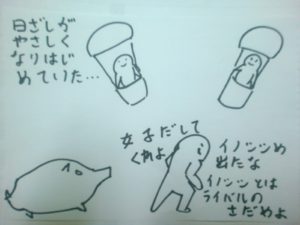 日ざしが
やさしく
なりはじ
めていた…
女子だして
くれよ
イノシシめ
出たな
イノシシとは
ライバルの
さだめよ